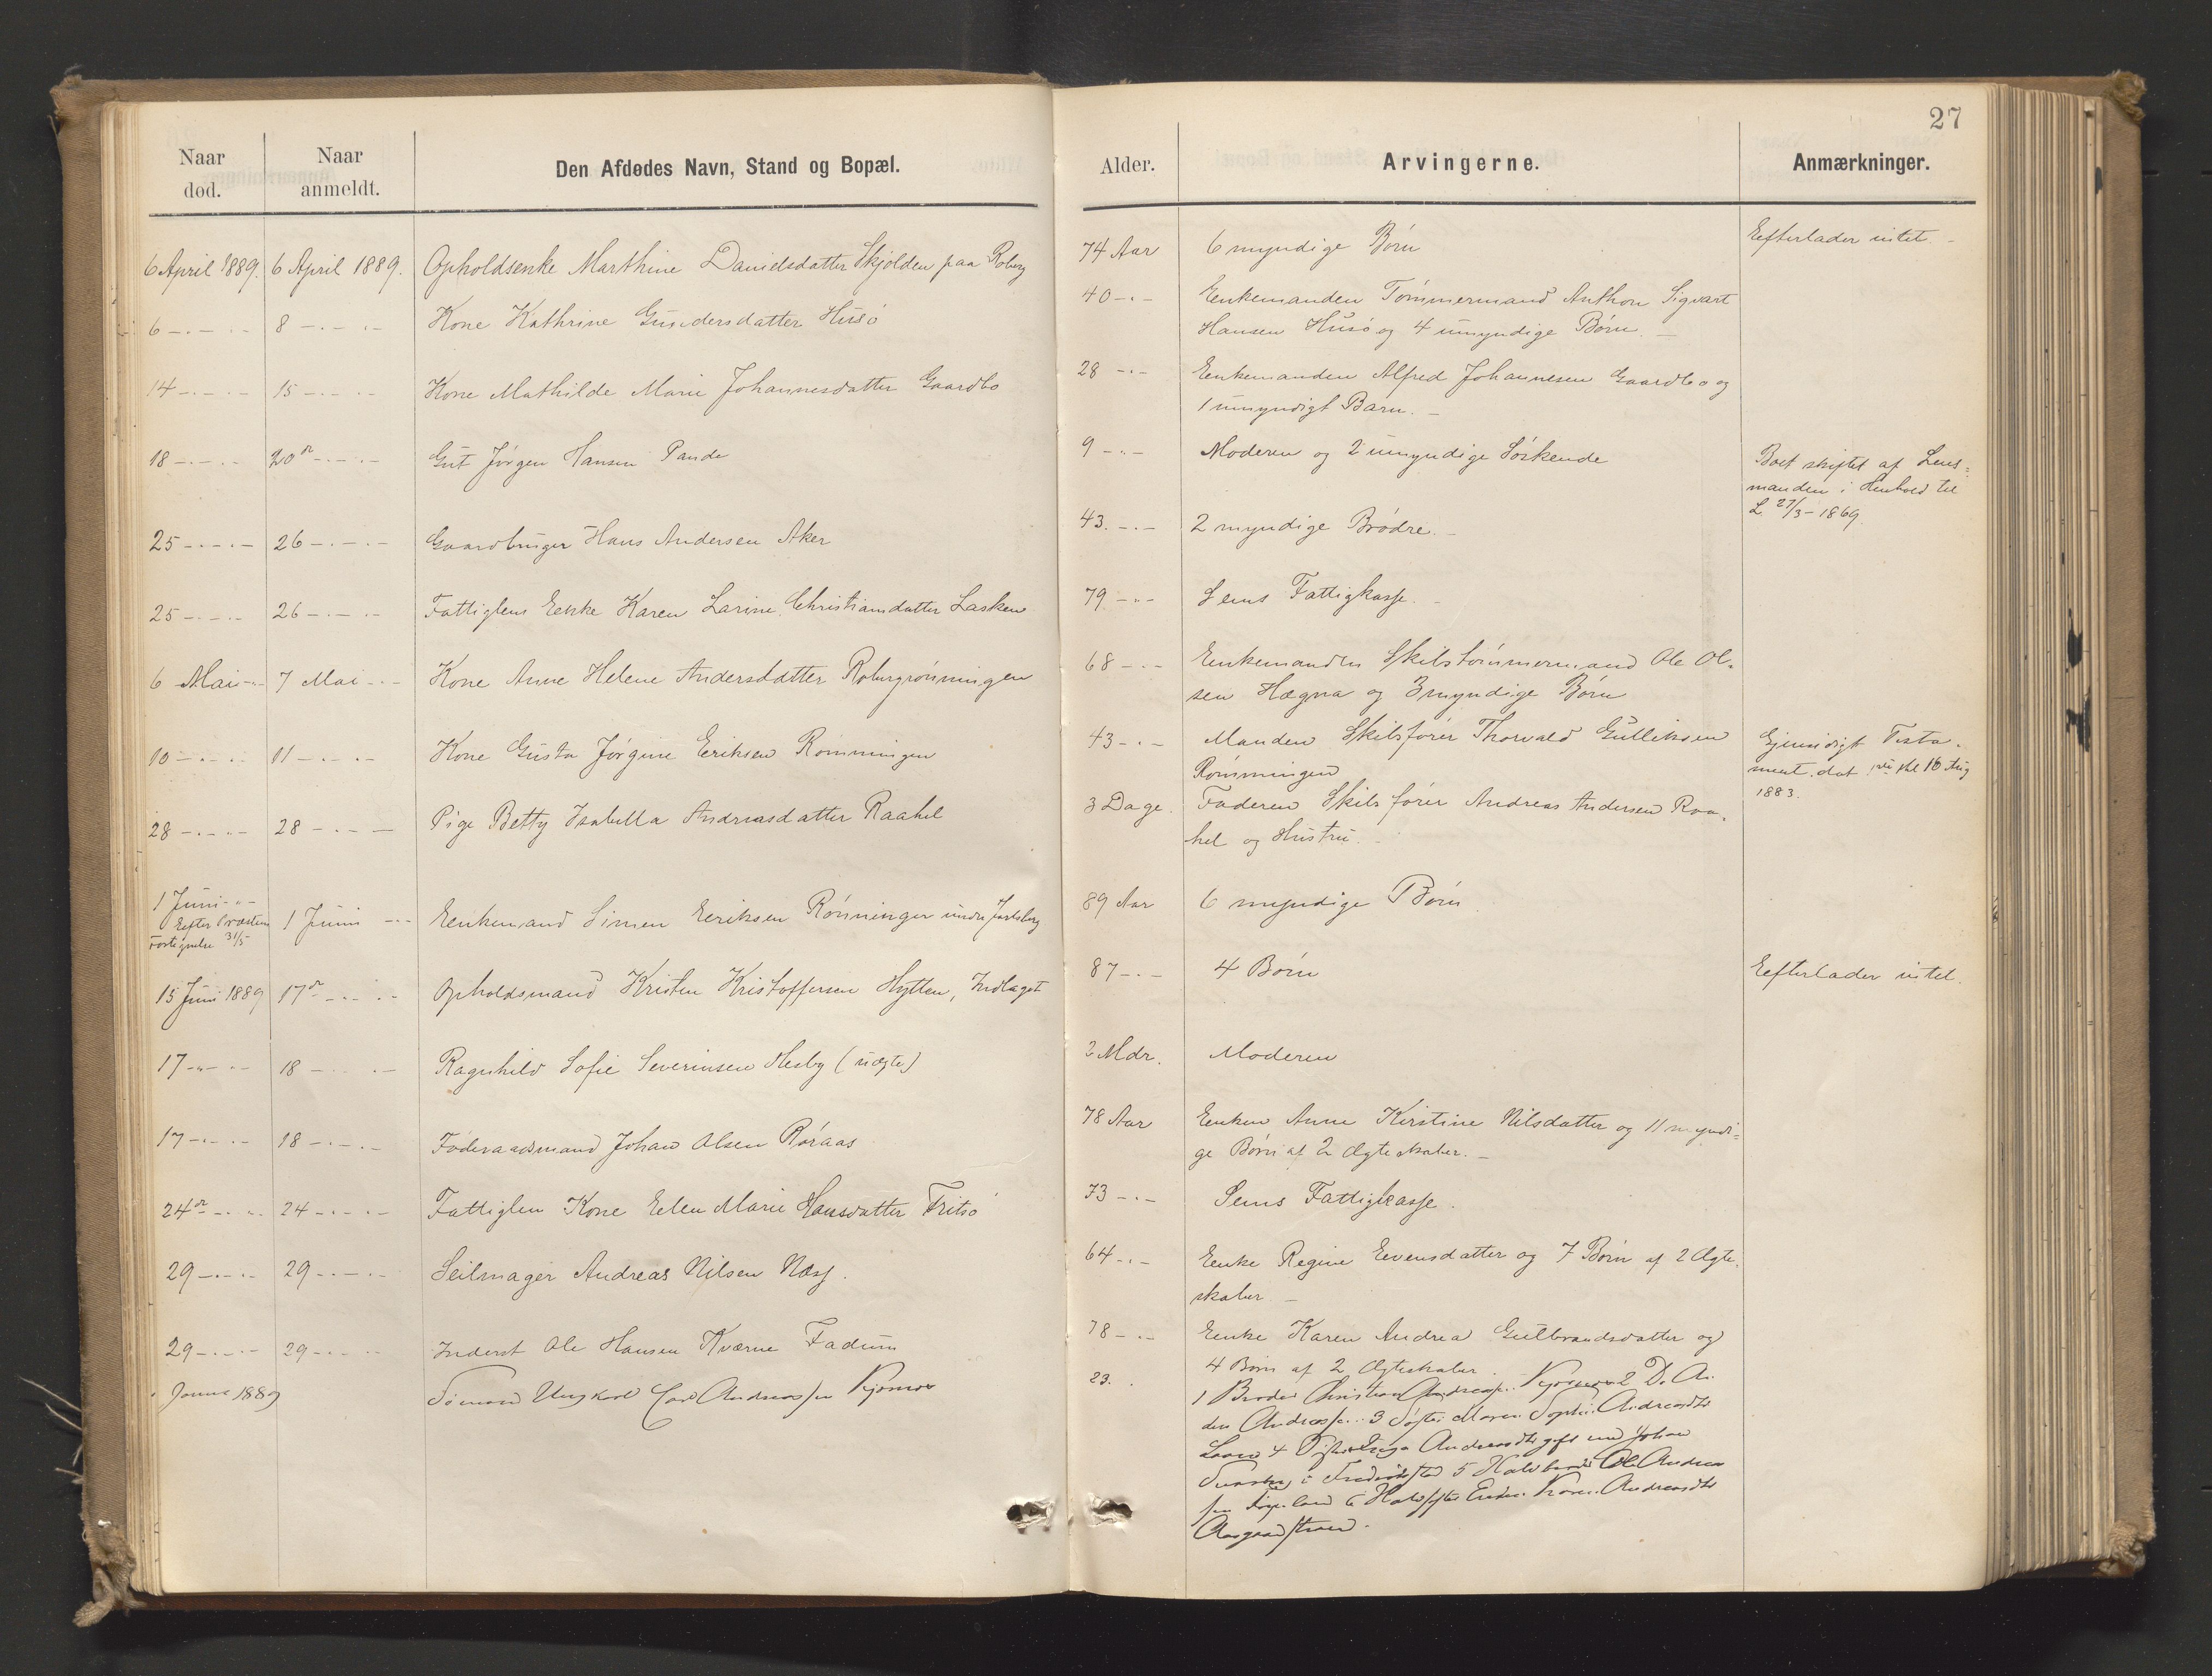 27
Naar død.
Naar anmeldt.
Den Afdødes Navn, Stand og Bopæl.
Alder.
Arvingerne.
Anmærkninger.
6 April 1889. 6 April 1889. Opholdsenke Marthine Danielsdatter Skjolden paa Roberg
74 Aar 6 myndige Børn
Eefterlader intet.
6 -.- 8 -.- Kone Kathrine Gundersdatter Husö
40 -.- Eenkemanden Tömmermand Anthon Sigvart
Hansen Husö og 4 umyndige Børn. -
14 -.- 15 -.- Kone Mathilde Marie Johannesdatter Gaardbo
28 -.- Eenkemanden Alfred Johannesen Gaardbo og
1 umyndigt Barn. -
18 -.- 20de -.- Gut Jörgen Hansen Pande
9 -.- Moderen og 2 umyndige Söskende
Boet skiftet af Lens=
manden i Henhold til
L 27/3-1869.
25 -.- 26 -.- Gaardbruger Hans Andersen Aker
43. -.- 2 myndige Brödre. -
25 -.- 26 -.- Fattiglem Eenke Karen Larine Christiansdatter Lasken
79 -.- Sems Fattigkasse. -
6 Mai -.- 7 Mai -.- Kone Anne Helene Andersdatter Robergrönningen
68 -.- Eenkemanden Skibstömmermand Ole Ol-
sen Hægna og 3 myndige Børn
10 -.- 11 -.- Kone Gusta Jörgine Eeriksen Rönningen
43 -.- Manden Skibsförer Thorvald Gulliksen
Rönningen
Gjensidigt Testa-
ment. dat. 16 Aug
1883.
28 -.- 28 -.- Pige Betty Isabella Andreasdatter Raahel
3 Dage. Faderen Skibsförer Andreas Andersen Raa-
hel og Hustru. -
1 Juni -"-
Eefter Præstens
Fortegnelse 31/5
1 Juni -.- Eenkemand Simen Eeriksen Rönningen under Jarlsberg
89 Aar 6 myndige Börn
15 Juni 1889 17de -.- Opholdsmand Kristen Kristoffersen Hytten, Indlaget
87 -.- 4 Börn
Eefterlader intet.
17 -"- 18 -.- Ragnhild Sofie Severinsen Hesby (uægte)
2 Mdr. Moderen
17 -.- 18 -.- Föderaadsmand Johan Olsen Röraas
78 Aar Eenken Anne Kirstine Nilsdatter og 11 myndi=
ge Börn af 2 Ægteskaber. -
24de -.- 24 -.- Fattiglem Kone Eelen Marie Hansdatter Fritsö
73 -.- Sems Fattigkasse.
29 -.- 29 -.- Seilmager Andreas Nilsen Næss.
64 -.- Eenke Regine Eevensdatter og 7 Börn af 2 Ægte-
skaber -
29 -.- 29 -.- Inderst Ole Hansen Kværne Fadum
78 -.- Eenke Karen Andrea Gulbrandsdatter og
4 Börn af 2 Ægteskaber.
Januar 1889 Sömand Ungkarl Carl Andreassen
23. 1 Broder Christian Andreassen 2
Andreassen 3 Söster Maren Sophie Andreasdtr
4 Söster Andreasdtr gift med Johan
i Fredrikstad 5 Halvbroder Ole Andreas
sen 6 Halvsöster Enken Karen Andreasdtr
Aasgaardstrand.